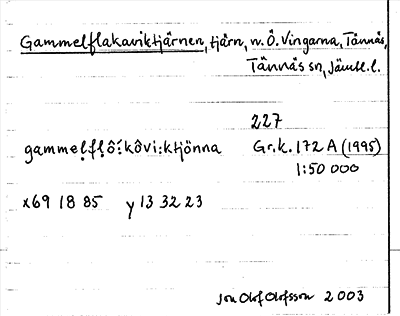 Gammelflakaviktjärnen, tjärn, n. Ö. Vingarna, Tännäs,
Tännäs sn, Jämtl. l.
227
gammel̥fl̥ô:kôvi:ktjönna Gr.k. 172 A (1995)
1:50 000
x69 18 85 y 13 32 23
Jon Olof Olofsson 2003